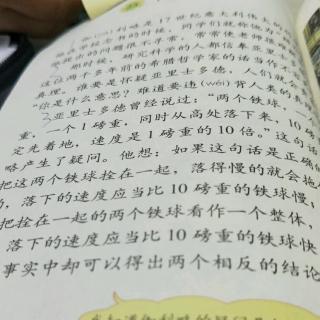 利略是17世纪意大利伟大的
学校念书的时候，同学们就称他为
提出的问题很不寻常，常常使老师
那时候，研究科学的人都信奉亚里士
这位两千多年前的希腊哲学家的话当作
真理。谁要是怀疑亚里士多德，人们就会
“你是什么意思？难道要违(wéi)背人类的真
亚里士多德曾经说过：“两个铁球，一个
重，一个1磅重，同时从高处落下来，10磅
定先着地，速度是1磅重的10倍。”这句话
略产生了疑问。他想：如果这句话是正确的
把这两个铁球拴在一起，落得慢的就会拖
落下的速度应当比10磅重的铁球慢；
把拴在一起的两个铁球看作一个整体，
落下的速度应当比10磅重的铁球快
事实中却可以得出两个相反的结论